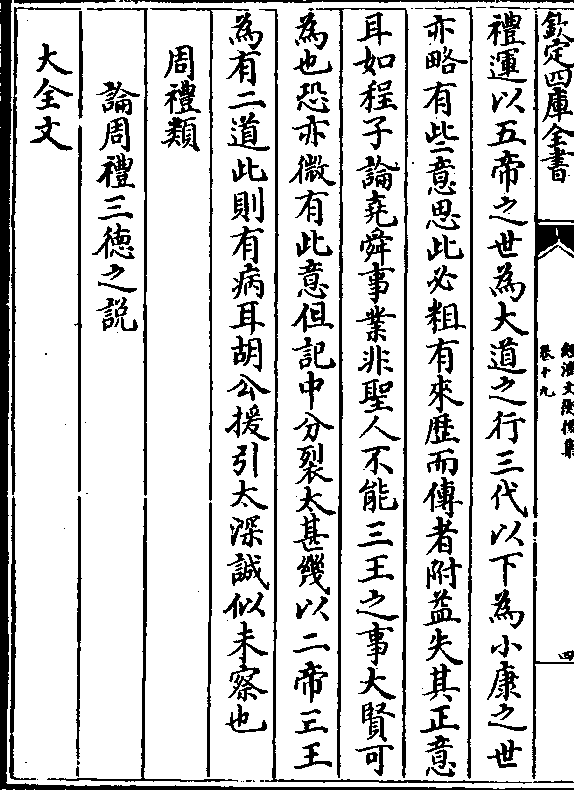 欽定四庫全書
經濟文衡後集
卷十九
四
禮運以五帝之世為大道之行三代以下為小康之世
亦略有此意思此必粗有來歴而傳者附益失其正意
耳如程子論堯舜事業非聖人不能三王之事大賢可
為也恐亦微有此意但記中分裂太甚幾以二帝三王
為有二道此則有病耳胡公援引太深誠似未察也
周禮類
論周禮三徳之説
大全文